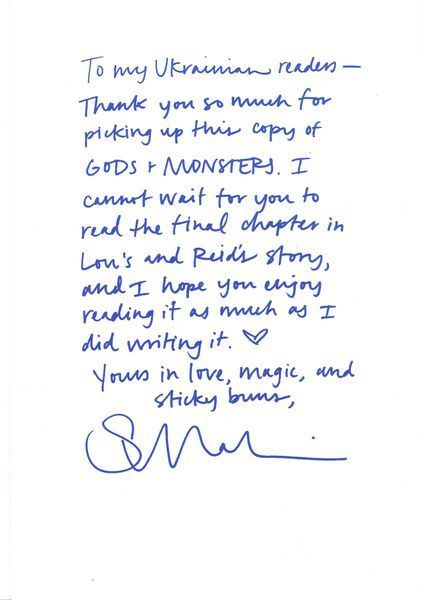 To my Ukrainian readers —
Thank you so much for
picking up this copy of
GODS + MONSTERS. I
cannot wait for you to
read the final chapter in
Lou's and Reid's story,
and I hope you enjoy
reading it as much as I
did writing it. ♡
Yours in love, magic, and
sticky buns,